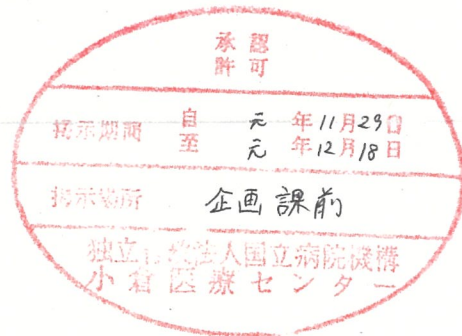 承認
許可
掲示期間 自 元 年11月29日
至 元 年12月18日
掲示場所 企画課前
独立行政法人国立病院機構
小倉医療センター